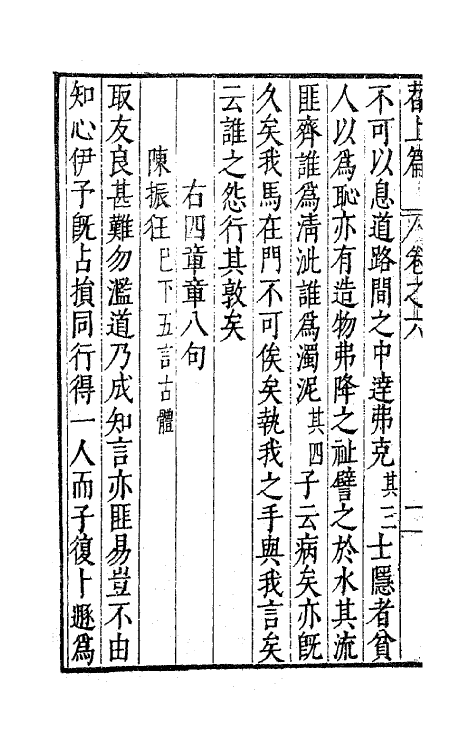 嵞上篇 卷之六 一
不可以息道路間之中達弗克其三士隱者貧
人以爲恥亦有造物弗降之祉譬之於水其流
匪齊誰爲清泚誰爲濁泥其四子云病矣亦旣
久矣我馬在門不可俟矣執我之手與我言矣
云誰之怨行其敦矣
右四章章八句
陳振狂已下五言古體
取友良甚難勿濫道乃成知言亦匪易豈不由
知心伊予旣占損同行得一人而子復卜遯爲